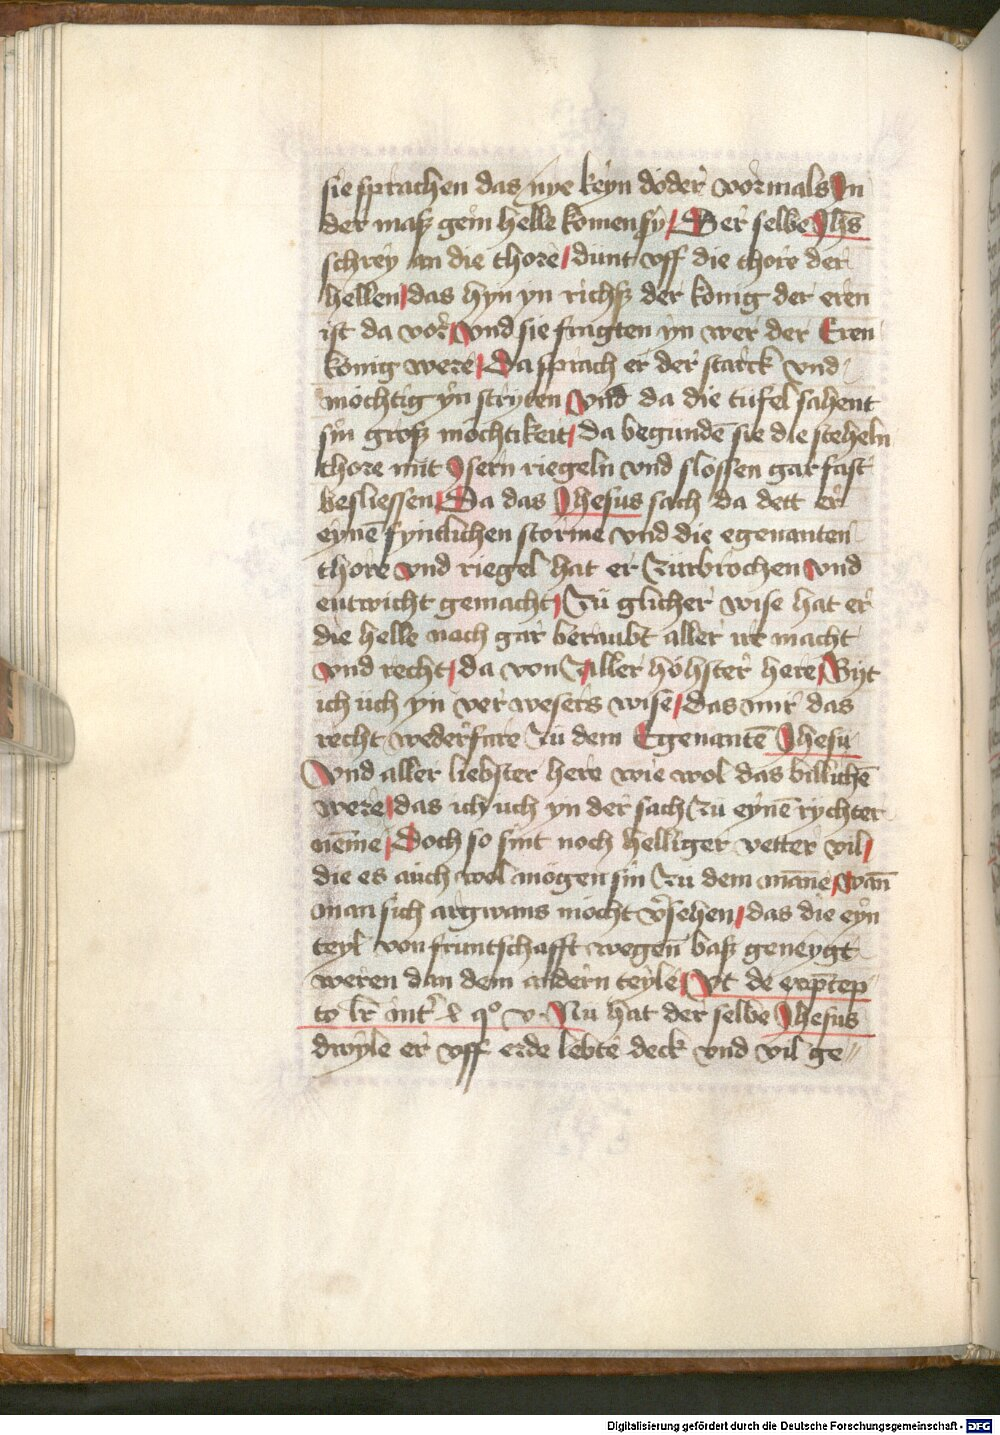 sie sprachen das nye keyn doder vormals In
der maß gein helle komen sy / Der selbe Jhs̄
schrey an die thore / dünt vff die thore der
hellen / das hyn yn richß der konig der eren
ist da vor / vnd sie fragten yn wer der Eren
konig were / Da sprach er der starck vnd
möchtig yn stryten Vnd da die tüfel sahent
sin groß möchtikeit / da begundē sie die steheln
thore mit Isern riegeln vnd slossen gar fast
besliessen / Da das Jhesus sach da dett er
eynē fyntlichen storme vnd die egenanten
thore vnd riegel hat er zürbrochen vnd
entwicht gemacht / Zü glicher wise hat er
die helle nach gar beraubt aller ire macht
vnd recht / da von Aller höhster here / Bijt
ich üch yn verwesers wise / das mir das
recht wederfare zü dem Egenantē Jhesu
Vnd aller liebster here wie wol das billichē
were / das ich uch yn der sach zu eynē rychter
nēme / Doch so sint noch helliger vetter vil /
die es auch wol mögen sin zü dem māne / wān
man sich argwans möcht v̓sehen / das die eyn
teyl von früntschafft wegen baß geneygt
weren dan dem andern teyle / Vt de
to v. Nü hat der selbe Jhesus
dwyle er vff erde lebte deck vnd vil ge//
Digitalisierung gefördert durch die Deutsche Forschungsgemeinschaft - DFG